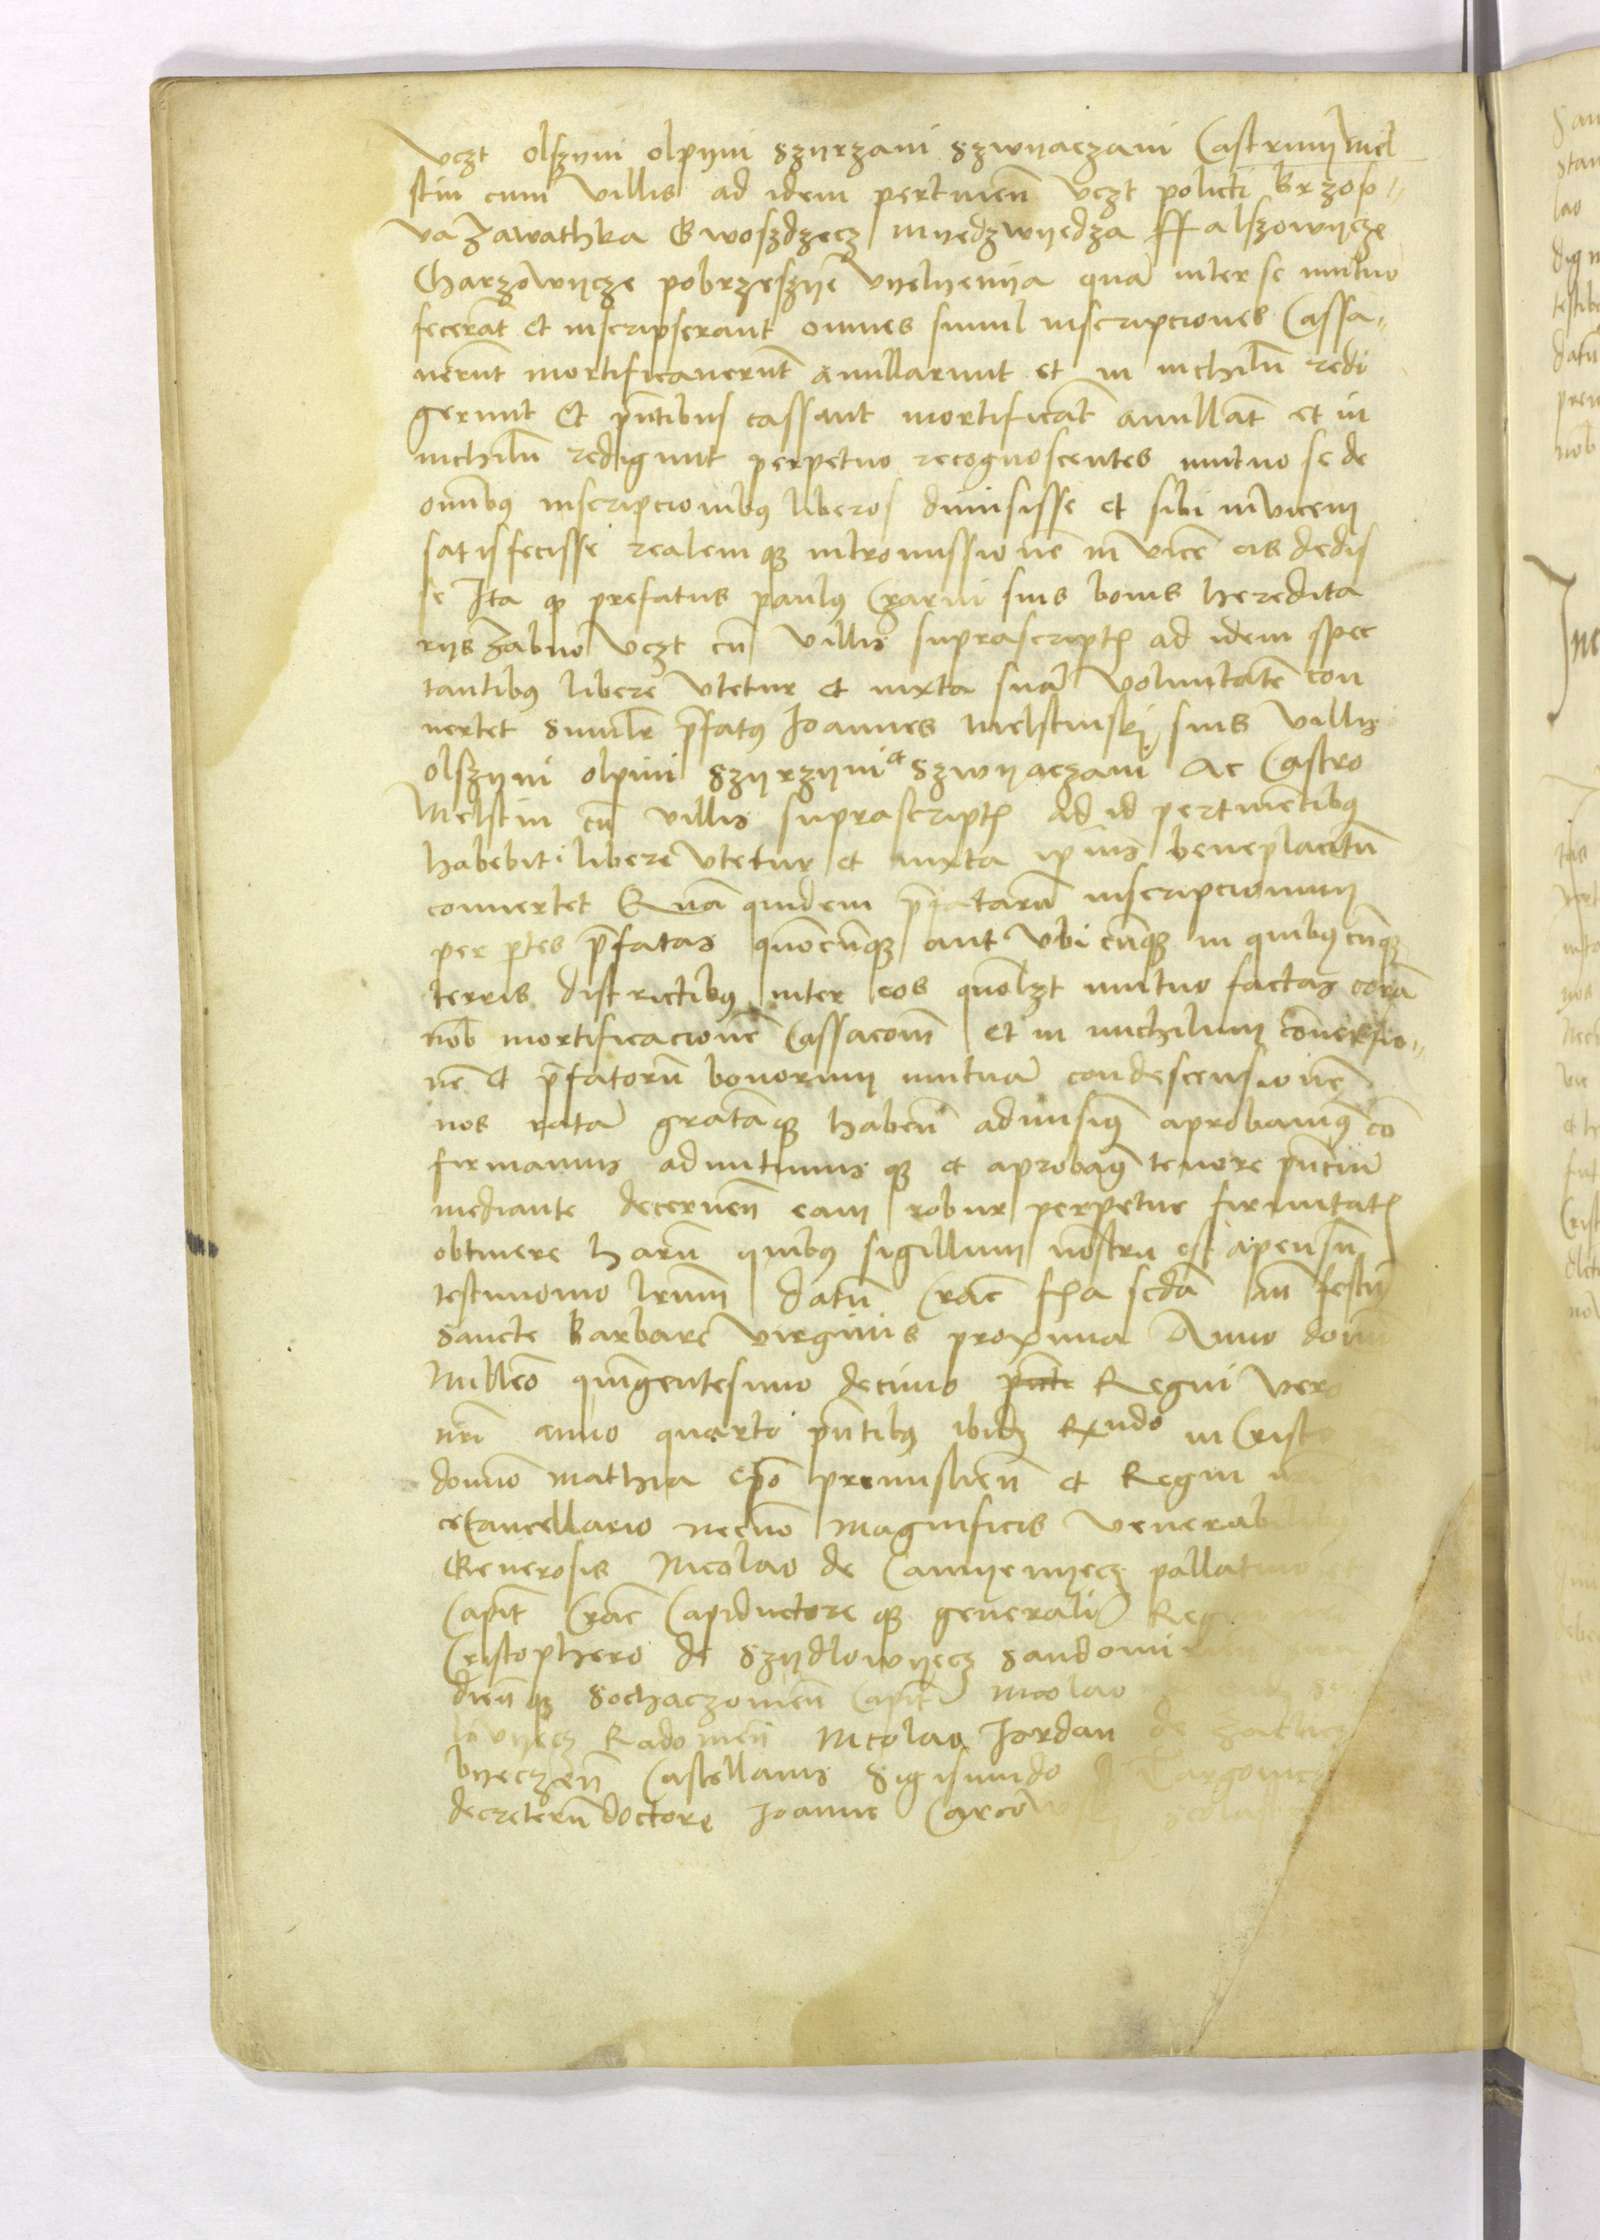 vczt olszyni olpyni szyrzani szwyaczani Castrum Mel
stin cum villis ad idem pertinen̄ vczt policti Brzoso⸗
va Zawathka Gwoszdzecz myedzwyedza ffalszowycze
Charzowycze pobrzeszye vyelyemya quā inter se mutuo
fecerāt et inscripserant omnes simul inscripciones Cassa⸗
uerūt mortificauerūt anullarunt et in nichilū redi
gerunt Et pn̄tibus cassant mortificāt anullāt et in
nichilū redigunt perpetuo recognoscentes mutuo se de
om̄ibꝰ inscripcionibꝰ liberos dimisisse et sibi inuicem
satisfecisse realemqꝫ intromissionē in vicē eis dedis
se Ita qꝫ prefatus paulꝰ Czarni suis bonis heredita
rijs Zabno vczt cū villis suprascriptꝭ ad idem spec
tantibꝰ libere vtetur et iuxta suā voluntatē con
uertet Similr̄ p̄fatꝰ Joannes Melstinskj suis villis
olszyni olpini szyrzyni et szwyaczani Ac Castro
Melstin cū villis suprascriptꝭ Ad id pertinētibꝰ
habebit libere vtetur et iuxta ipsius beneplacitū
conuertet Quā quidem p̄fatarū inscripcionum
per ptes p̄fatas quōcūqꝫ aut vbicūqꝫ in quibꝰcūqꝫ
terris districtibꝰ inter eos quōlꝫt mutuo factas corā
nob̄ mortificacionē Cassacōm̄ et in nichilum cōuersio⸗
nē et p̄fatorū bonorum mutuā condescensionē
nos ratā gratāqꝫ haben̄ admisimꝰ aprobauimꝰ cō
firmamus admittimus qꝫ et aprobamꝰ tenore pn̄ciū
mediante decernen̄ eam robur perpetue firmitatꝭ
obtinere harū quibꝰ sigillum nostrū est apensū
testimonio lr̄arum datū Crac̄ fꝭa scdā an̄ festū
sancte Barbare virginis proxima Anno domi
Millēo quīgentesimo decimo Regni vero
nr̄i anno quarto pn̄tibꝰ ibidꝫ Rx̄ndo in Cristo
domino Mathia epō premislien̄ et Regni
cetancellario necnō Magnificis Venerabilibꝰ
Generosis Nicolao de Camyenyecz pallatino et
Capit̄ Crac̄ Capiductore qꝫ generali Reg
Cristophero de Szydlowyecz sandomirien
dien̄qꝫ sochaczouien̄ Capit̄ Nicolao
lovyecz Radomien̄ Nicolao Jordan de Zaclic
byeczen̄ Castellanis Sigismundo de Targowicz
decretorū doctore Joanne Carcow